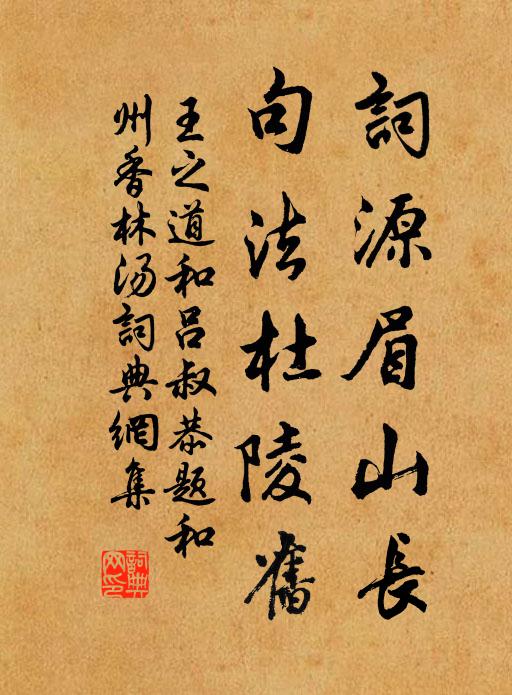 詞源眉山長
句法杜陵舊
王之道和呂叔恭題和
州香林湯詞典網集
詞典
网印